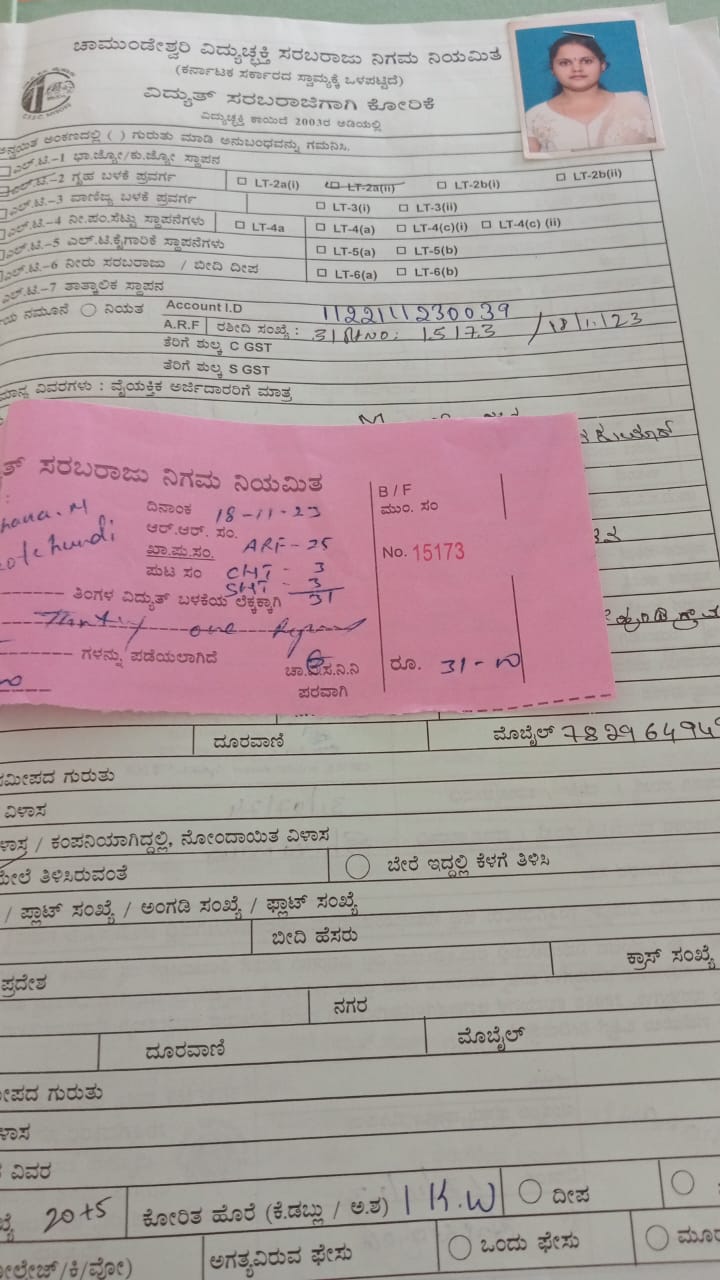 ಚಾಮುಂಡೇಶ್ವರಿ ವಿದ್ಯುಚ್ಛಕ್ತಿ ಸರಬರಾಜು ನಿಗಮ ನಿಯಮಿತ
(ಕರ್ನಾಟಕ ಸರ್ಕಾರದ ಸ್ವಾಮ್ಯಕ್ಕೆ ಒಳಪಟ್ಟಿದೆ)
ವಿದ್ಯುತ್ ಸರಬರಾಜಿಗಾಗಿ ಕೋರಿಕೆ
ವಿದ್ಯುಚ್ಛಕ್ತಿ ಕಾಯಿದೆ 2003ರ ಅಡಿಯಲ್ಲಿ
ಅಂಕಣದಲ್ಲಿ ( ) ಗುರುತು ಮಾಡಿ ಅನುಬಂಧವನ್ನು ಗಮನಿಸಿ.
ಎಲ್.ಟಿ.-1 ಭಾ.ಜ್ಯೋ/ಕು.ಜ್ಯೋ ಸ್ಥಾಪನ
ಎಲ್.ಟಿ.-2 ಗೃಹ ಬಳಕೆ ಪ್ರವರ್ಗ LT-2a(i) LT-2a(ii) LT-2b(i) LT-2b(ii)
ಎಲ್.ಟಿ.-3 ವಾಣಿಜ್ಯ ಬಳಕೆ ಪ್ರವರ್ಗ LT-3(i) LT-3(ii)
ಎಲ್.ಟಿ.-4 ನೀ.ಪಂ.ಸೆಟ್ಟು ಸ್ಥಾಪನೆಗಳು LT-4a LT-4(a) LT-4(c)(i) LT-4(c) (ii)
ಎಲ್.ಟಿ.-5 ಎಲ್.ಟಿ.ಕೈಗಾರಿಕೆ ಸ್ಥಾಪನೆಗಳು LT-5(a) LT-5(b)
ಎಲ್.ಟಿ.-6 ನೀರು ಸರಬರಾಜು / ಬೀದಿ ದೀಪ LT-6(a) LT-6(b)
ಎಲ್.ಟಿ.-7 ತಾತ್ಕಾಲಿಕ ಸ್ಥಾಪನ
ನಮೂನೆ ನಿಯತ Account I.D 1122111230039
A.R.F ರಶೀದಿ ಸಂಖ್ಯೆ : 31 15173 /18/11/23
ತೆರಿಗೆ ಶುಲ್ಕ C GST
ತೆರಿಗೆ ಶುಲ್ಕ S GST
ವಿವರಗಳು : ವೈಯಕ್ತಿಕ ಅರ್ಜಿದಾರರಿಗೆ ಮಾತ್ರ
ಸರಬರಾಜು ನಿಗಮ ನಿಯಮಿತ
B / F
ಮುಂ. ಸಂ
ದಿನಾಂಕ 18-11-23
ಆರ್.ಆರ್. ಸಂ.
ಖಾ.ಪು.ಸಂ. ARF-25
No. 15173
ಪುಟ ಸಂ
3
3
ತಿಂಗಳ ವಿದ್ಯುತ್ ಬಳಕೆಯ ಲೆಕ್ಕಕ್ಕಾಗಿ 31
one
ಗಳನ್ನು ಪಡೆಯಲಾಗಿದೆ
ರೂ. 31-00
ಪರವಾಗಿ
ದೂರವಾಣಿ ಮೊಬೈಲ್ 782964949
ಗುರುತು
ವಿಳಾಸ
/ ಕಂಪನಿಯಾಗಿದ್ದಲ್ಲಿ, ನೋಂದಾಯಿತ ವಿಳಾಸ
ಮೇಲೆ ತಿಳಿಸಿರುವಂತೆ ಬೇರೆ ಇದ್ದಲ್ಲಿ ಕೆಳಗೆ ತಿಳಿಸಿ
/ ಪ್ಲಾಟ್ ಸಂಖ್ಯೆ / ಅಂಗಡಿ ಸಂಖ್ಯೆ / ಫ್ಲಾಟ್ ಸಂಖ್ಯೆ
ಬೀದಿ ಹೆಸರು
ಪ್ರದೇಶ ಕ್ರಾಸ್ ಸಂಖ್ಯೆ
ನಗರ
ದೂರವಾಣಿ ಮೊಬೈಲ್
ಗುರುತು
ವಿವರ
20+5 ಕೋರಿತ ಹೊರೆ (ಕೆ.ಡಬ್ಲು / ಅ.ಶ) 1 K.W ದೀಪ
ಅಗತ್ಯವಿರುವ ಫೇಸು ಒಂದು ಫೇಸು